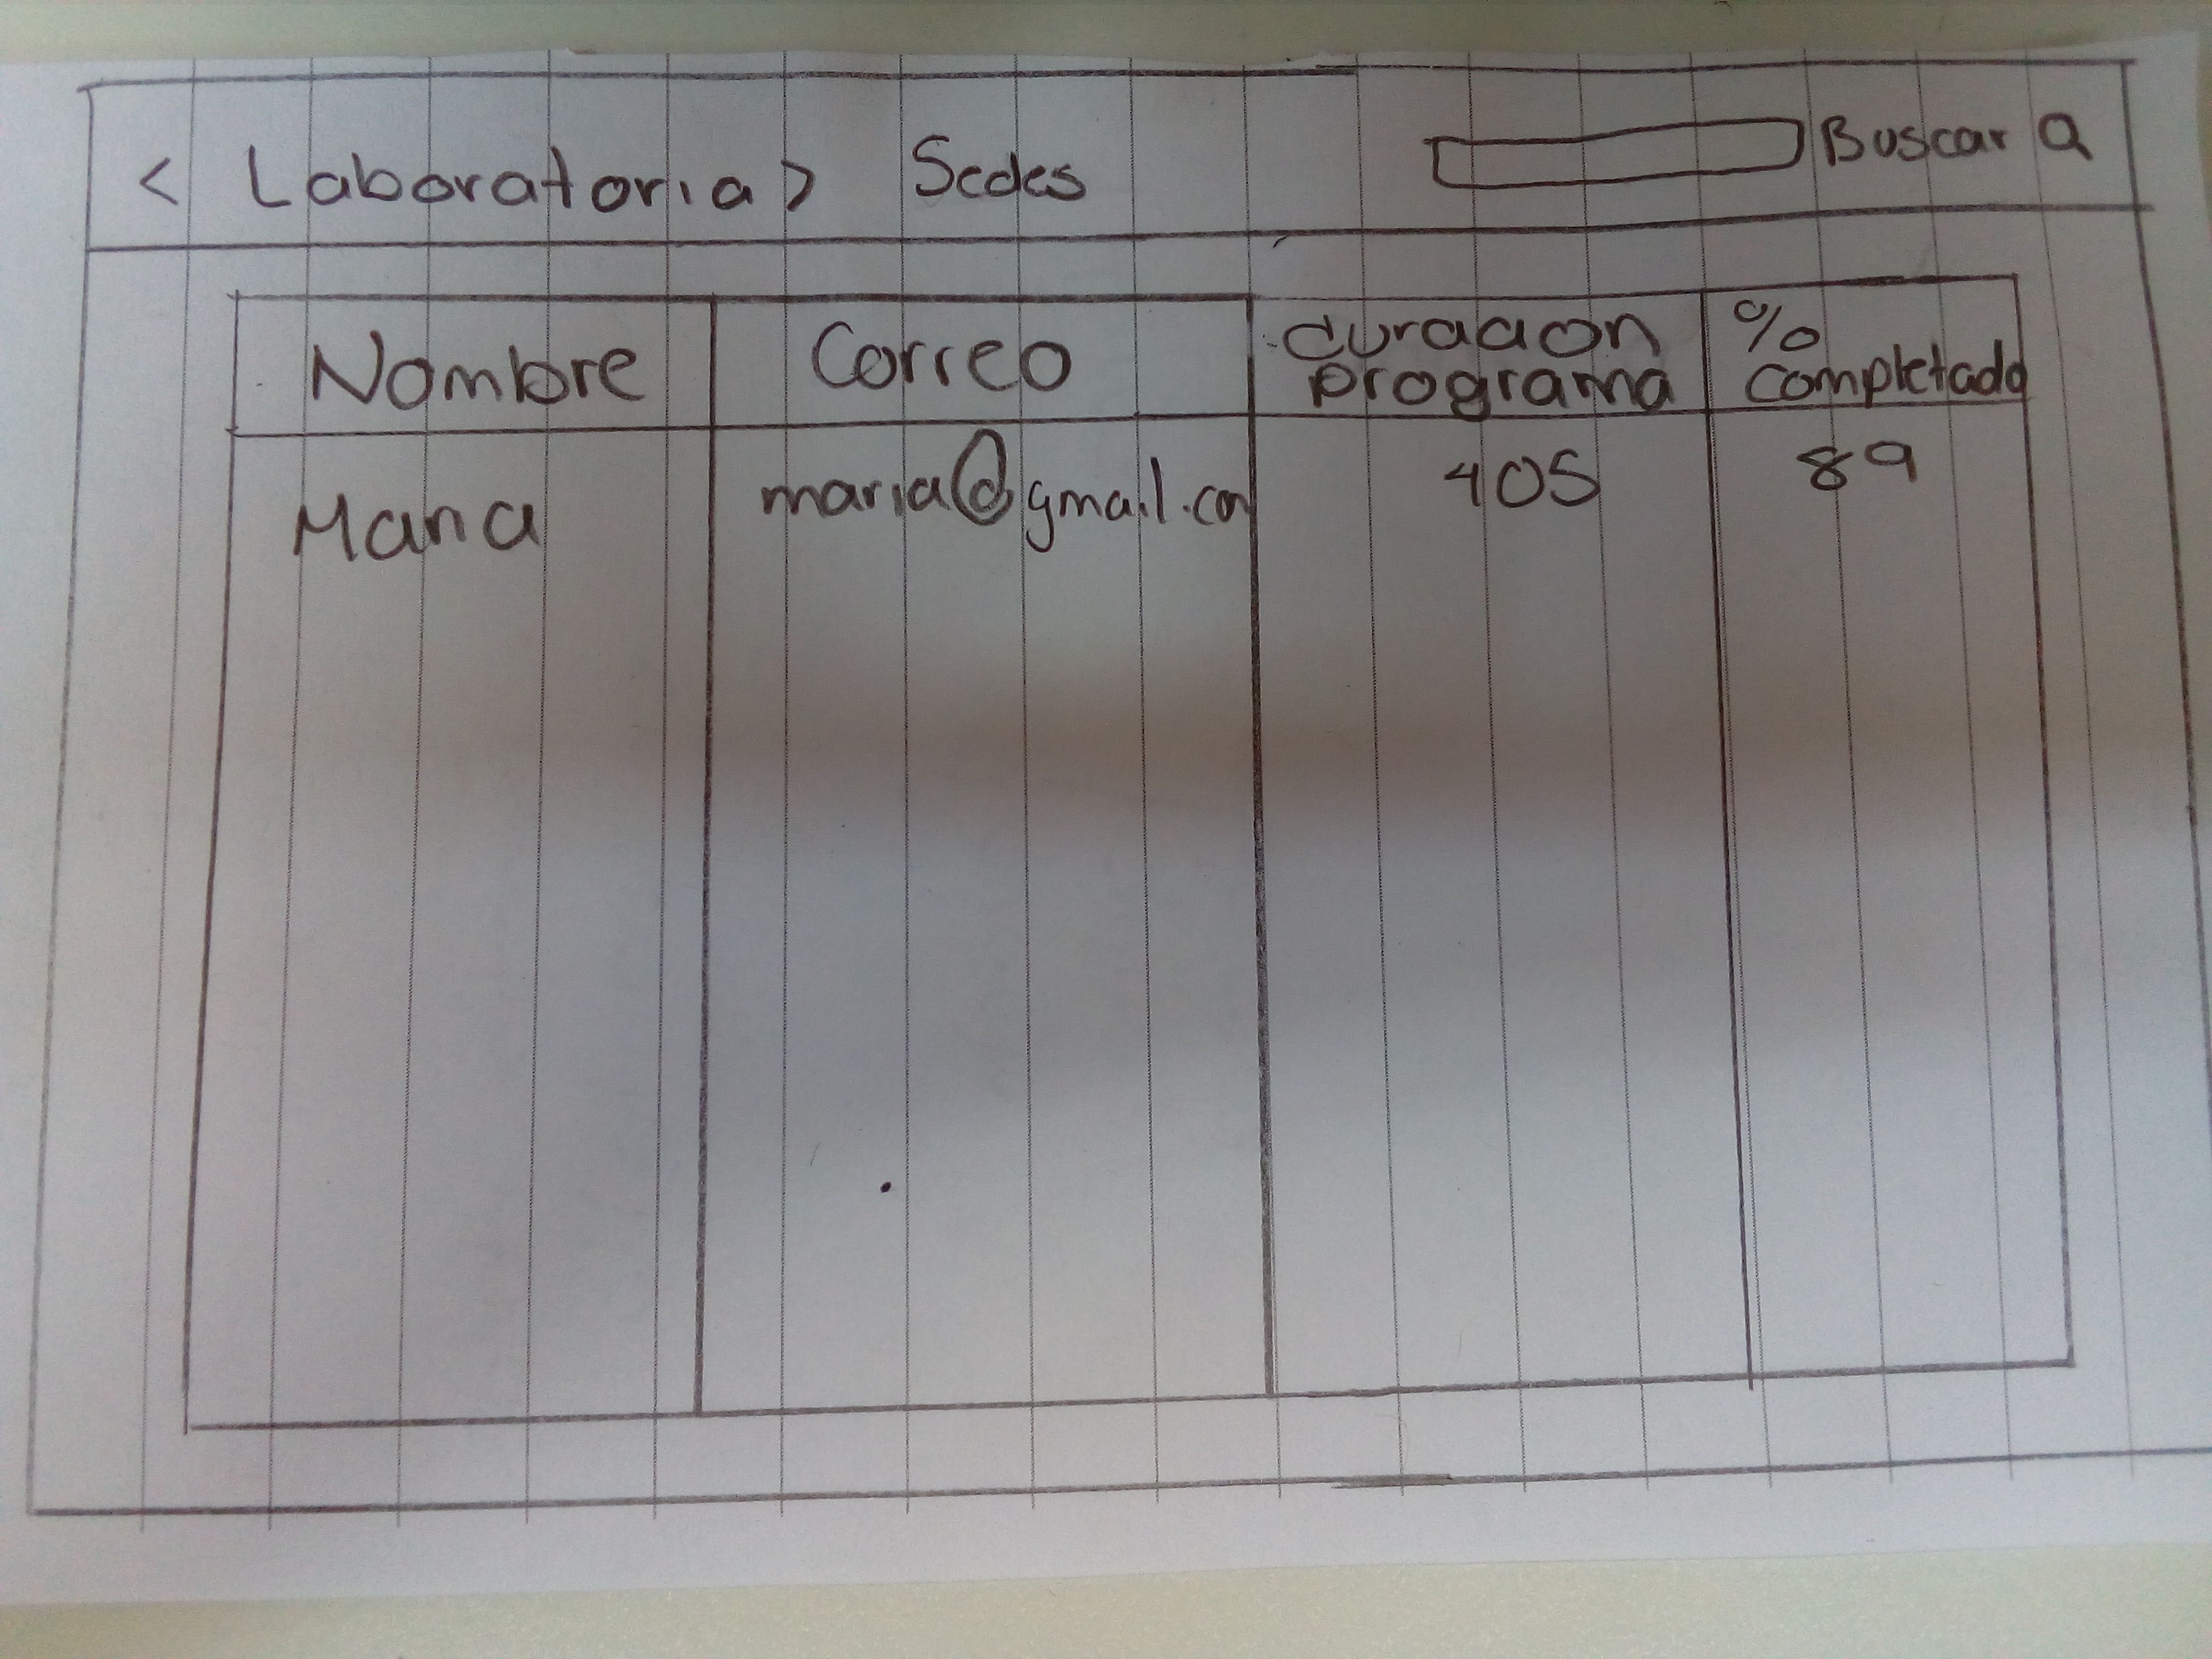 < Laboratoria> Sedes Buscar
Nombre Correo duracion programa % completado
Maria maria@gmail.com 405 89